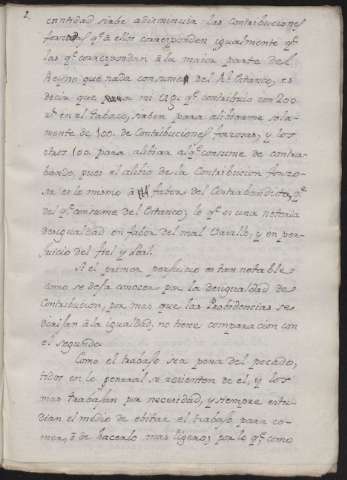 2.
cantidad sirbe adisminuir las Contribuciones
forzosas qe. à ellos corresponden igualmente qe.
las qe. corresponden à la maior parte del
Reyno que nada consume del Rl. Estanco, es
decir que para mi qe. contribuio con 200
rs. en el tabaco, sirben para alibiarme sola-
mente de 100. de Contribuciones forzosas, y los
otros 100. para alibiar al qe. consume de contra-
bando, pues el alibio de la Contribucion forzo-
sa es lo mismo à fabor del Contrabandista, qe.
del qe. consume del Estanco; lo qe. es una notoria
desigualdad en fabor del mal Vasallo, y en per-
juicio del fiel y leal.
Si el primer perjuicio es tan notable
como se deja conocer por la desigualdad de
Contribucion, por mas que las Probidencias se
dirijan à la igualdad, no tiene comparacion con
el segundo.
Como el trabajo sea pena del pecado,
todos en lo general se resienten de el, y los
mas trabajan por necesidad, y siempre estu-
dian el medio de ebitar el trabajo, para co-
mer, ò de hacerlo mas ligero; por lo qe. como